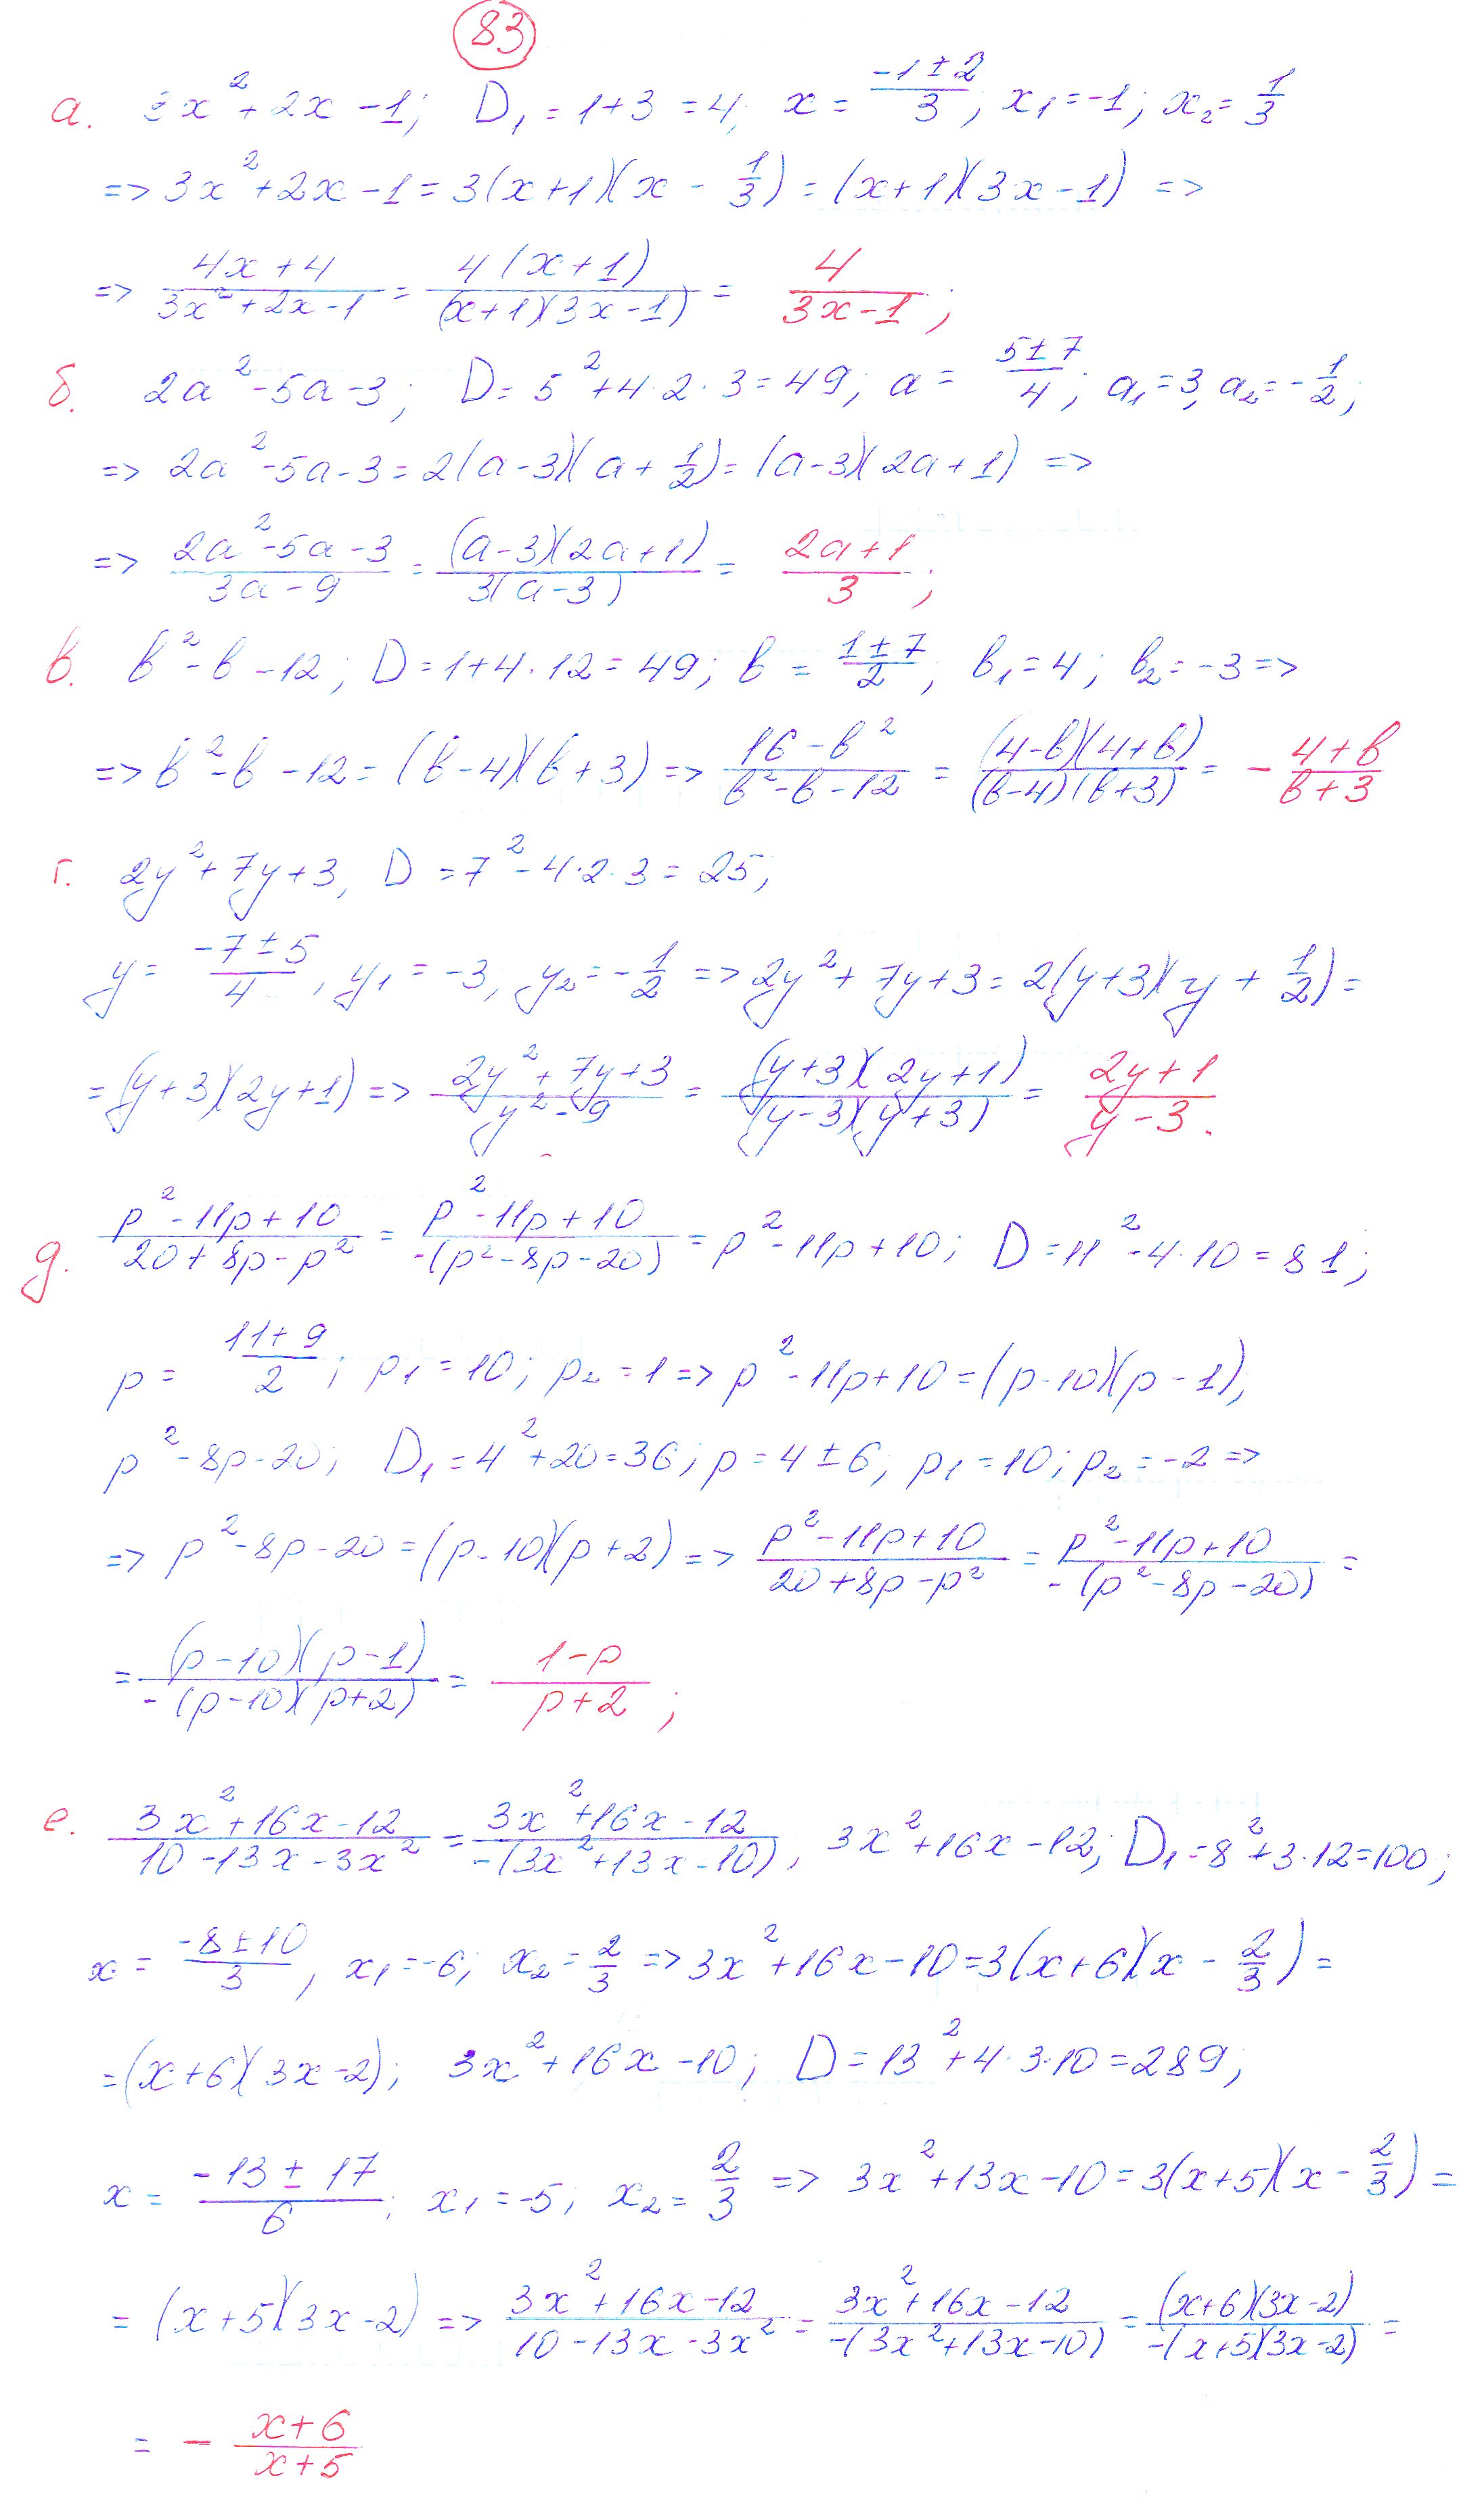 83
а. 3x² + 2x - 1; D₁ = 1 + 3 = 4; x = (-1 ± 2)/3; x₁ = -1; x₂ = 1/3
=> 3x² + 2x - 1 = 3(x + 1)(x - 1/3) = (x + 1)(3x - 1) =>
=> (4x + 4)/(3x² + 2x - 1) = 4(x + 1)/((x + 1)(3x - 1)) = 4/(3x - 1);
б. 2a² - 5a - 3; D = 5² + 4·2·3 = 49; a = (5 ± 7)/4; a₁ = 3, a₂ = -1/2;
=> 2a² - 5a - 3 = 2(a - 3)(a + 1/2) = (a - 3)(2a + 1) =>
=> (2a² - 5a - 3)/(3a - 9) = (a - 3)(2a + 1)/(3(a - 3)) = (2a + 1)/3;
в. b² - b - 12; D = 1 + 4·12 = 49; b = (1 ± 7)/2; b₁ = 4; b₂ = -3 =>
=> b² - b - 12 = (b - 4)(b + 3) => (16 - b²)/(b² - b - 12) = (4 - b)(4 + b)/((b - 4)(b + 3)) = - (4 + b)/(b + 3)
г. 2y² + 7y + 3, D = 7² - 4·2·3 = 25;
y = (-7 ± 5)/4, y₁ = -3, y₂ = -1/2 => 2y² + 7y + 3 = 2(y + 3)(y + 1/2) =
= (y + 3)(2y + 1) => (2y² + 7y + 3)/(y² - 9) = (y + 3)(2y + 1)/((y - 3)(y + 3)) = (2y + 1)/(y - 3).
д. (p² - 11p + 10)/(20 + 8p - p²) = (p² - 11p + 10)/(-(p² - 8p - 20)) = p² - 11p + 10; D = 11² - 4·10 = 81;
p = (11 ± 9)/2; p₁ = 10; p₂ = 1 => p² - 11p + 10 = (p - 10)(p - 1),
p² - 8p - 20; D₁ = 4² + 20 = 36; p = 4 ± 6; p₁ = 10; p₂ = -2 =>
=> p² - 8p - 20 = (p - 10)(p + 2) => (p² - 11p + 10)/(20 + 8p - p²) = (p² - 11p + 10)/(-(p² - 8p - 20)) =
= (p - 10)(p - 1)/(-(p - 10)(p + 2)) = (1 - p)/(p + 2);
е. (3x² + 16x - 12)/(10 - 13x - 3x²) = (3x² + 16x - 12)/(-(3x² + 13x - 10)), 3x² + 16x - 12; D₁ = 8² + 3·12 = 100;
x = (-8 ± 10)/3, x₁ = -6; x₂ = 2/3 => 3x² + 16x - 10 = 3(x + 6)(x - 2/3) =
= (x + 6)(3x - 2); 3x² + 16x - 10; D = 13² + 4·3·10 = 289;
x = (-13 ± 17)/6; x₁ = -5; x₂ = 2/3 => 3x² + 13x - 10 = 3(x + 5)(x - 2/3) =
= (x + 5)(3x - 2) => (3x² + 16x - 12)/(10 - 13x - 3x²) = (3x² + 16x - 12)/(-(3x² + 13x - 10)) = (x + 6)(3x - 2)/(-(x + 5)(3x - 2)) =
= - (x + 6)/(x + 5)